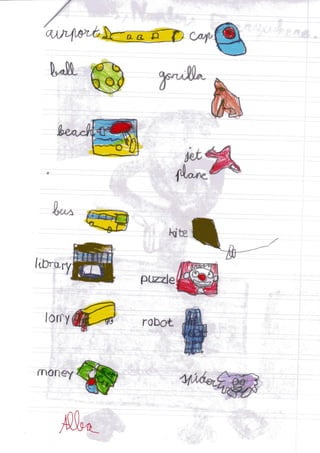 airport
cap
ball
gorilla
beach
jet
plane
bus
kite
library
puzzle
lorry
robot
money
spider
Alba